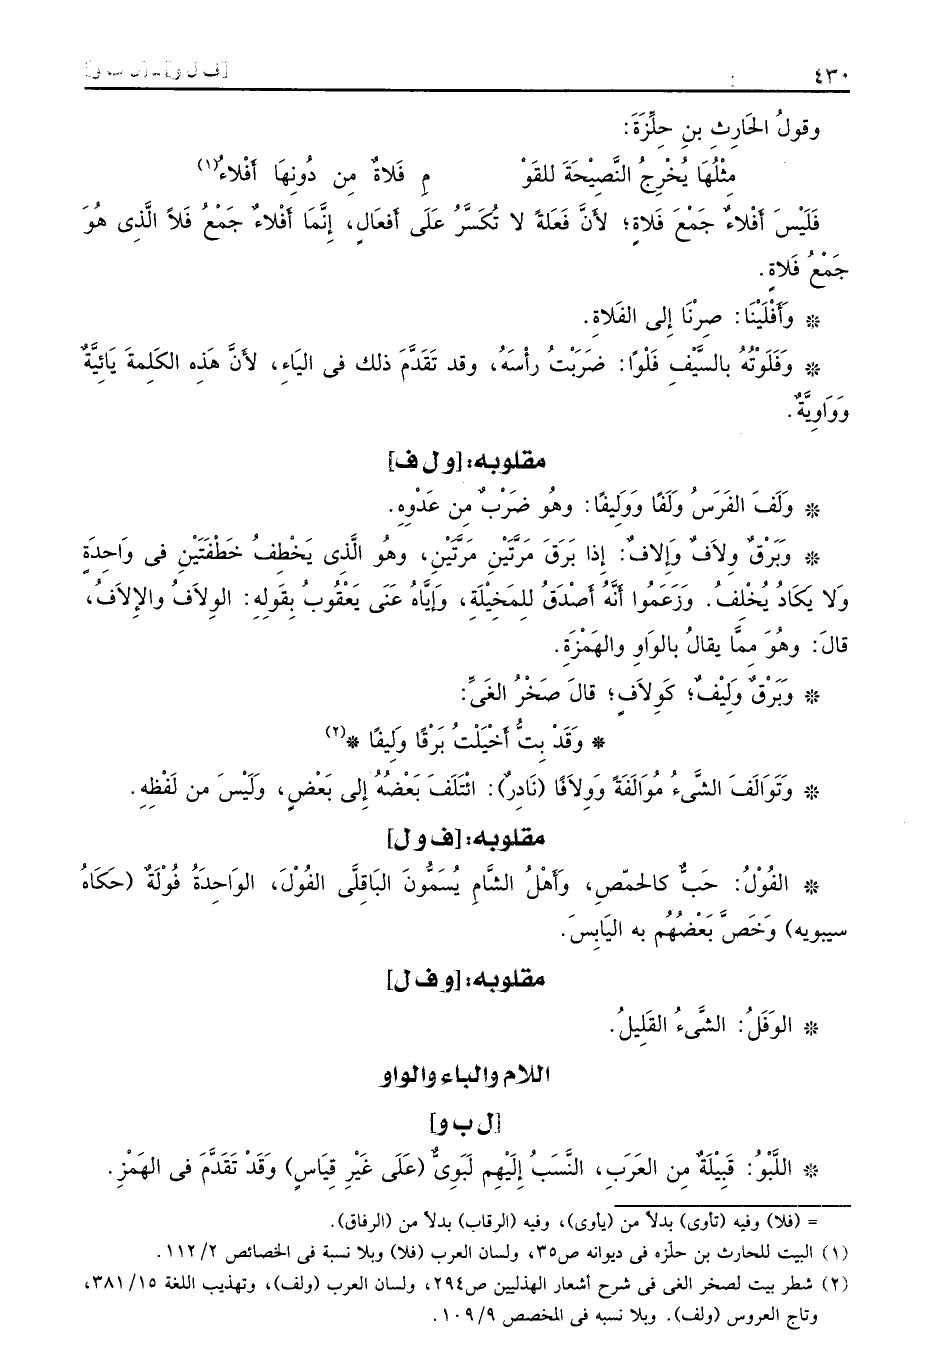 ٤٣٠
وقولُ الحَارِثِ بنِ حلِّزَةَ:
مِثْلُهَا يُخْرِجُ النَّصِيْحَةَ للقَوْ مِ فَلاةٌ مِن دُونِهَا أَفْلاءُ(١)
فَلَيْسَ أَفْلاءٌ جَمْعَ فَلاةٍ؛ لأنَّ فَعَلَةً لا تُكَسَّرُ عَلَى أفعَالٍ، إنَّمَا أفْلاءٌ جَمْعُ فَلاً الَّذِى هُوَ
جَمْعُ فَلاةٍ.
* وَأَفْلَيْنَا: صِرْنَا إلى الفَلاةِ.
* وَفَلَوْتُهُ بالسَّيْفِ فَلْوًا: ضَرَبْتُ رأْسَهُ، وقد تَقَدَّمَ ذلك فى اليَاءِ، لأنَّ هَذِه الكَلِمةَ يَائِيَّةٌ
وَوَاوِيَّةٌ.
مقلوبه: [و ل ف]
* وَلَفَ الفَرَسُ وَلَفًا وَوَلِيفًا: وهُو ضَرْبٌ مِن عَدْوِهِ.
* وَبَرْقٌ وِلافٌ وَإِلافٌ: إذا بَرَقَ مَرَّتَيْنِ مَرَّتَيْنِ، وهُو الَّذى يَخْطِفُ خَطْفَتَيْنِ فى وَاحِدَةٍ
وَلا يَكَادُ يُخْلِفُ. وَزَعَمُوا أَنَّهُ أصْدَقُ للمَخِيْلَةِ، وَإِيَّاهُ عَنَى يَعْقُوبُ بِقَولِهِ: الوِلافُ والإِلافُ،
قالَ: وهُوَ مِمَّا يقالُ بالوَاوِ والهَمْزَةِ.
* وَبَرْقٌ وَلِيْفٌ؛ كَوِلاَفٍ؛ قالَ صَخْرُ الغَىِّ:
* وَقَدْ بِتُّ أَخْيَلْتُ بَرْقًا وَلِيفًا *(٢)
* وَتَوَالَفَ الشَّىءُ مُوَالَفَةً وَوِلاَفًا (نَادِرٌ): ائْتَلَفَ بَعْضُهُ إلى بَعْضٍ، وَلَيْسَ من لَفْظِهِ.
مقلوبه: [ف و ل]
* الفُوْلُ: حَبٌّ كالحمّصِ، وَأَهْلُ الشَّامِ يُسَمُّونَ البَاقِلَّى الفُوْلَ، الوَاحِدَةُ فُوْلَةٌ (حَكَاهُ
سيبويه) وَخَصَّ بَعْضُهُم به اليَابِسَ.
مقلوبه: [و ف ل]
* الوَفَلُ: الشَّىءُ القَلِيلُ.
اللام والباء والواو
[ل ب و]
* اللَّبْوُ: قَبِيْلَةٌ مِن العَرَبِ، النَّسَبُ إِلَيْهِم لَبَوِىٌّ (عَلَى غَيْرِ قِيَاسٍ) وَقَدْ تَقَدَّمَ فى الهَمْزِ.
= (فلا) وفيه (تأوى) بدلاً من (يأوى)، وفيه (الرقاب) بدلاً من (الرفاق).
(١) البيت للحارث بن حلّزه فى ديوانه ص٣٥، ولسان العرب (فلا) وبلا نسبة فى الخصائص ١١٢/٢.
(٢) شطر بيت لصخر الغى فى شرح أشعار الهذليين ص٢٩٤، ولسان العرب (ولف)، وتهذيب اللغة ٣٨١/١٥،
وتاج العروس (ولف). وبلا نسبه فى المخصص ١٠٩/٩.